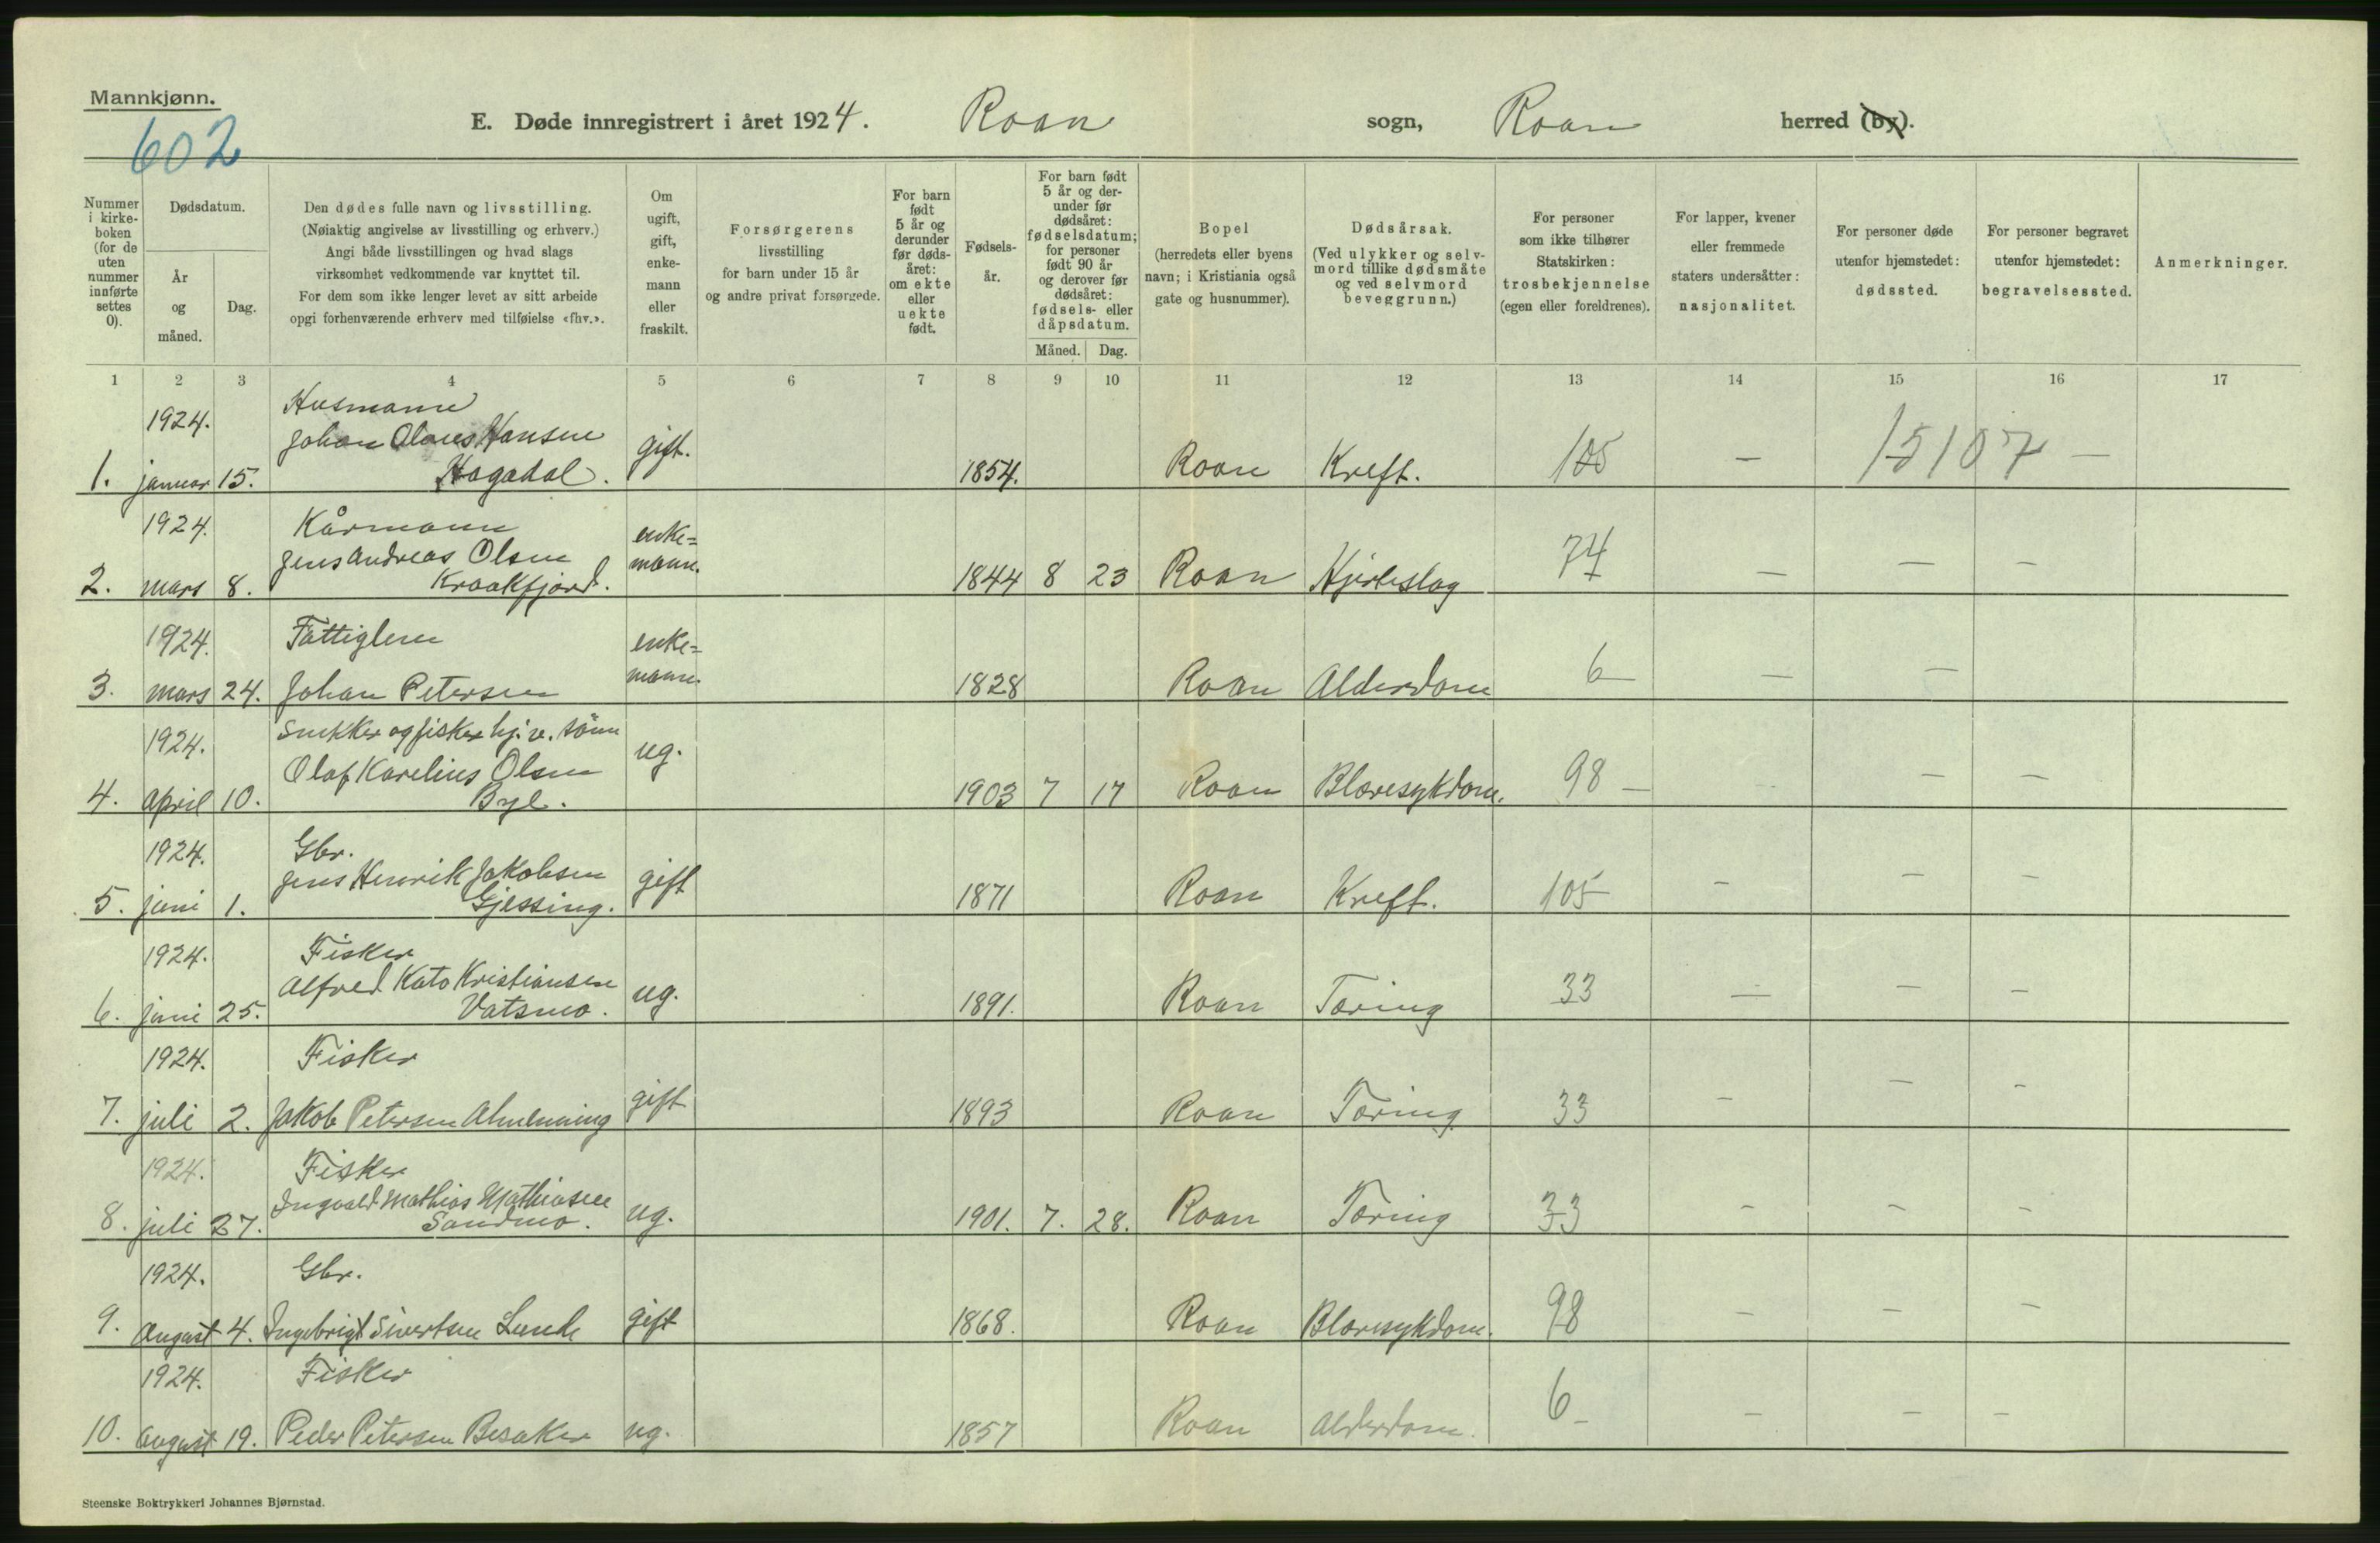 Mannkjønn.
602
E. Døde innregistrert i året 1924. Roan sogn, Roan herred (by).
Nummer i kirkeboken (for de uten nummer innførte settes 0).
Dødsdatum.
År og måned.
Dag.
Den dødes fulle navn og livsstilling.
(Nøiaktig angivelse av livsstilling og erhverv.)
Angi både livsstillingen og hvad slags
virksomhet vedkommende var knyttet til.
For dem som ikke lenger levet av sitt arbeide
opgi forhenværende erhverv med tilføielse «fhv.».
Om ugift, gift, enkemann eller fraskilt.
Forsørgerens
livsstilling
for barn under 15 år
og andre privat forsørgede.
For barn født 5 år og derunder før dødsåret: om ekte eller uekte født.
Fødselsår.
For barn født 5 år og derunder før dødsåret: fødselsdatum; for personer født 90 år og derover før dødsåret: fødsels- eller dåpsdatum.
Måned. Dag.
Bopel
(herredets eller byens
navn; i Kristiania også
gate og husnummer).
Dødsårsak.
(Ved ulykker og selvmord tillike dødsmåte og ved selvmord beveggrunn.)
For personer
som ikke tilhører
Statskirken:
trosbekjennelse
(egen eller foreldrenes).
For lapper, kvener
eller fremmede
staters undersåtter:
nasjonalitet.
For personer døde
utenfor hjemstedet:
dødssted.
For personer begravet
utenfor hjemstedet:
begravelsessted.
Anmerkninger.
1 2 3 4 5 6 7 8 9 10 11 12 13 14 15 16 17
1924. Husmann
Johan Olaus Hansen gift.
1. januar 15. Hagadal. 1854. Roan Kreft. 105 — 15107 —
1924. Kårmann enke=
Jens Andreas Olsen mann.
2. mars 8. Kraakfjord. 1844 8 23 Roan Hjerteslag 74 — — —
1924. Fattiglem enke=
mann.
3. mars 24. Johan Petersen 1828 Roan Alderdom 6 — — —
1924. Snekker og fisker hj. v. sønn
Olaf Karelius Olsen ug.
4. april 10. Bye. 1903 7 17 Roan Blæresykdom. 98 — — —
1924. Gbr.
Jens Henrik Jakobsen gift
5. juni 1. Gjessing. 1871 Roan Kreft. 105 — — —
1924. Fisker
Alfred Kato Kristiansen ug.
6. juni 25. Vatsmo. 1891. Roan Tæring 33 — — —
1924. Fisker
7. juli 2. Jakob Petersen Almenning gift 1893 Roan Tæring 33 — — —
1924. Fisker
Ingvald Mathias Mathiasen
8. juli 27. Sandmo. ug. 1901. 7. 28. Roan Tæring 33 — — —
1924. Gbr.
9. august 4. Ingebrigt Sivertsen Lunde gift 1868. Roan Blæresykdom. 98 — — —
1924. Fisker
10. august 19. Peder Petersen Besaker ug. 1857 Roan Alderdom. 6 — — — —
Steenske Boktrykkeri Johannes Bjørnstad.